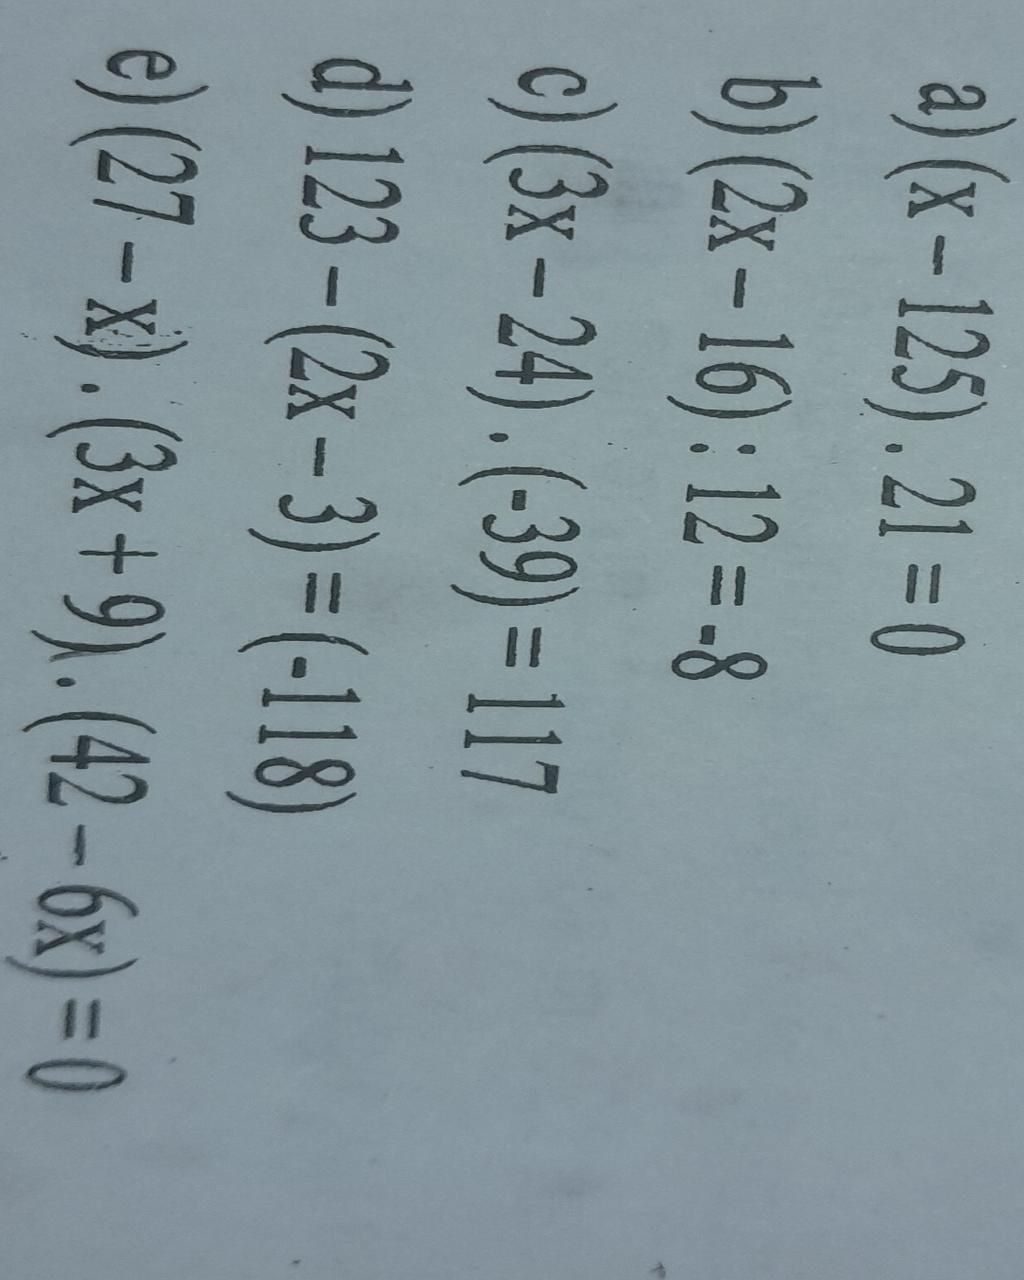 a) (x – 125) . 21 = 0
b) (2x – 16) : 12 = -8
c) (3x – 24) . (-39) = 117
d) 123 – (2x – 3) = (-118)
e) (27 – x) . (3x + 9). (42 – 6x) = 0